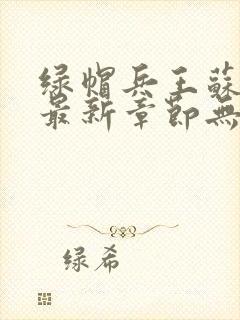 绿帽兵王蘇
最新章節無
绿希